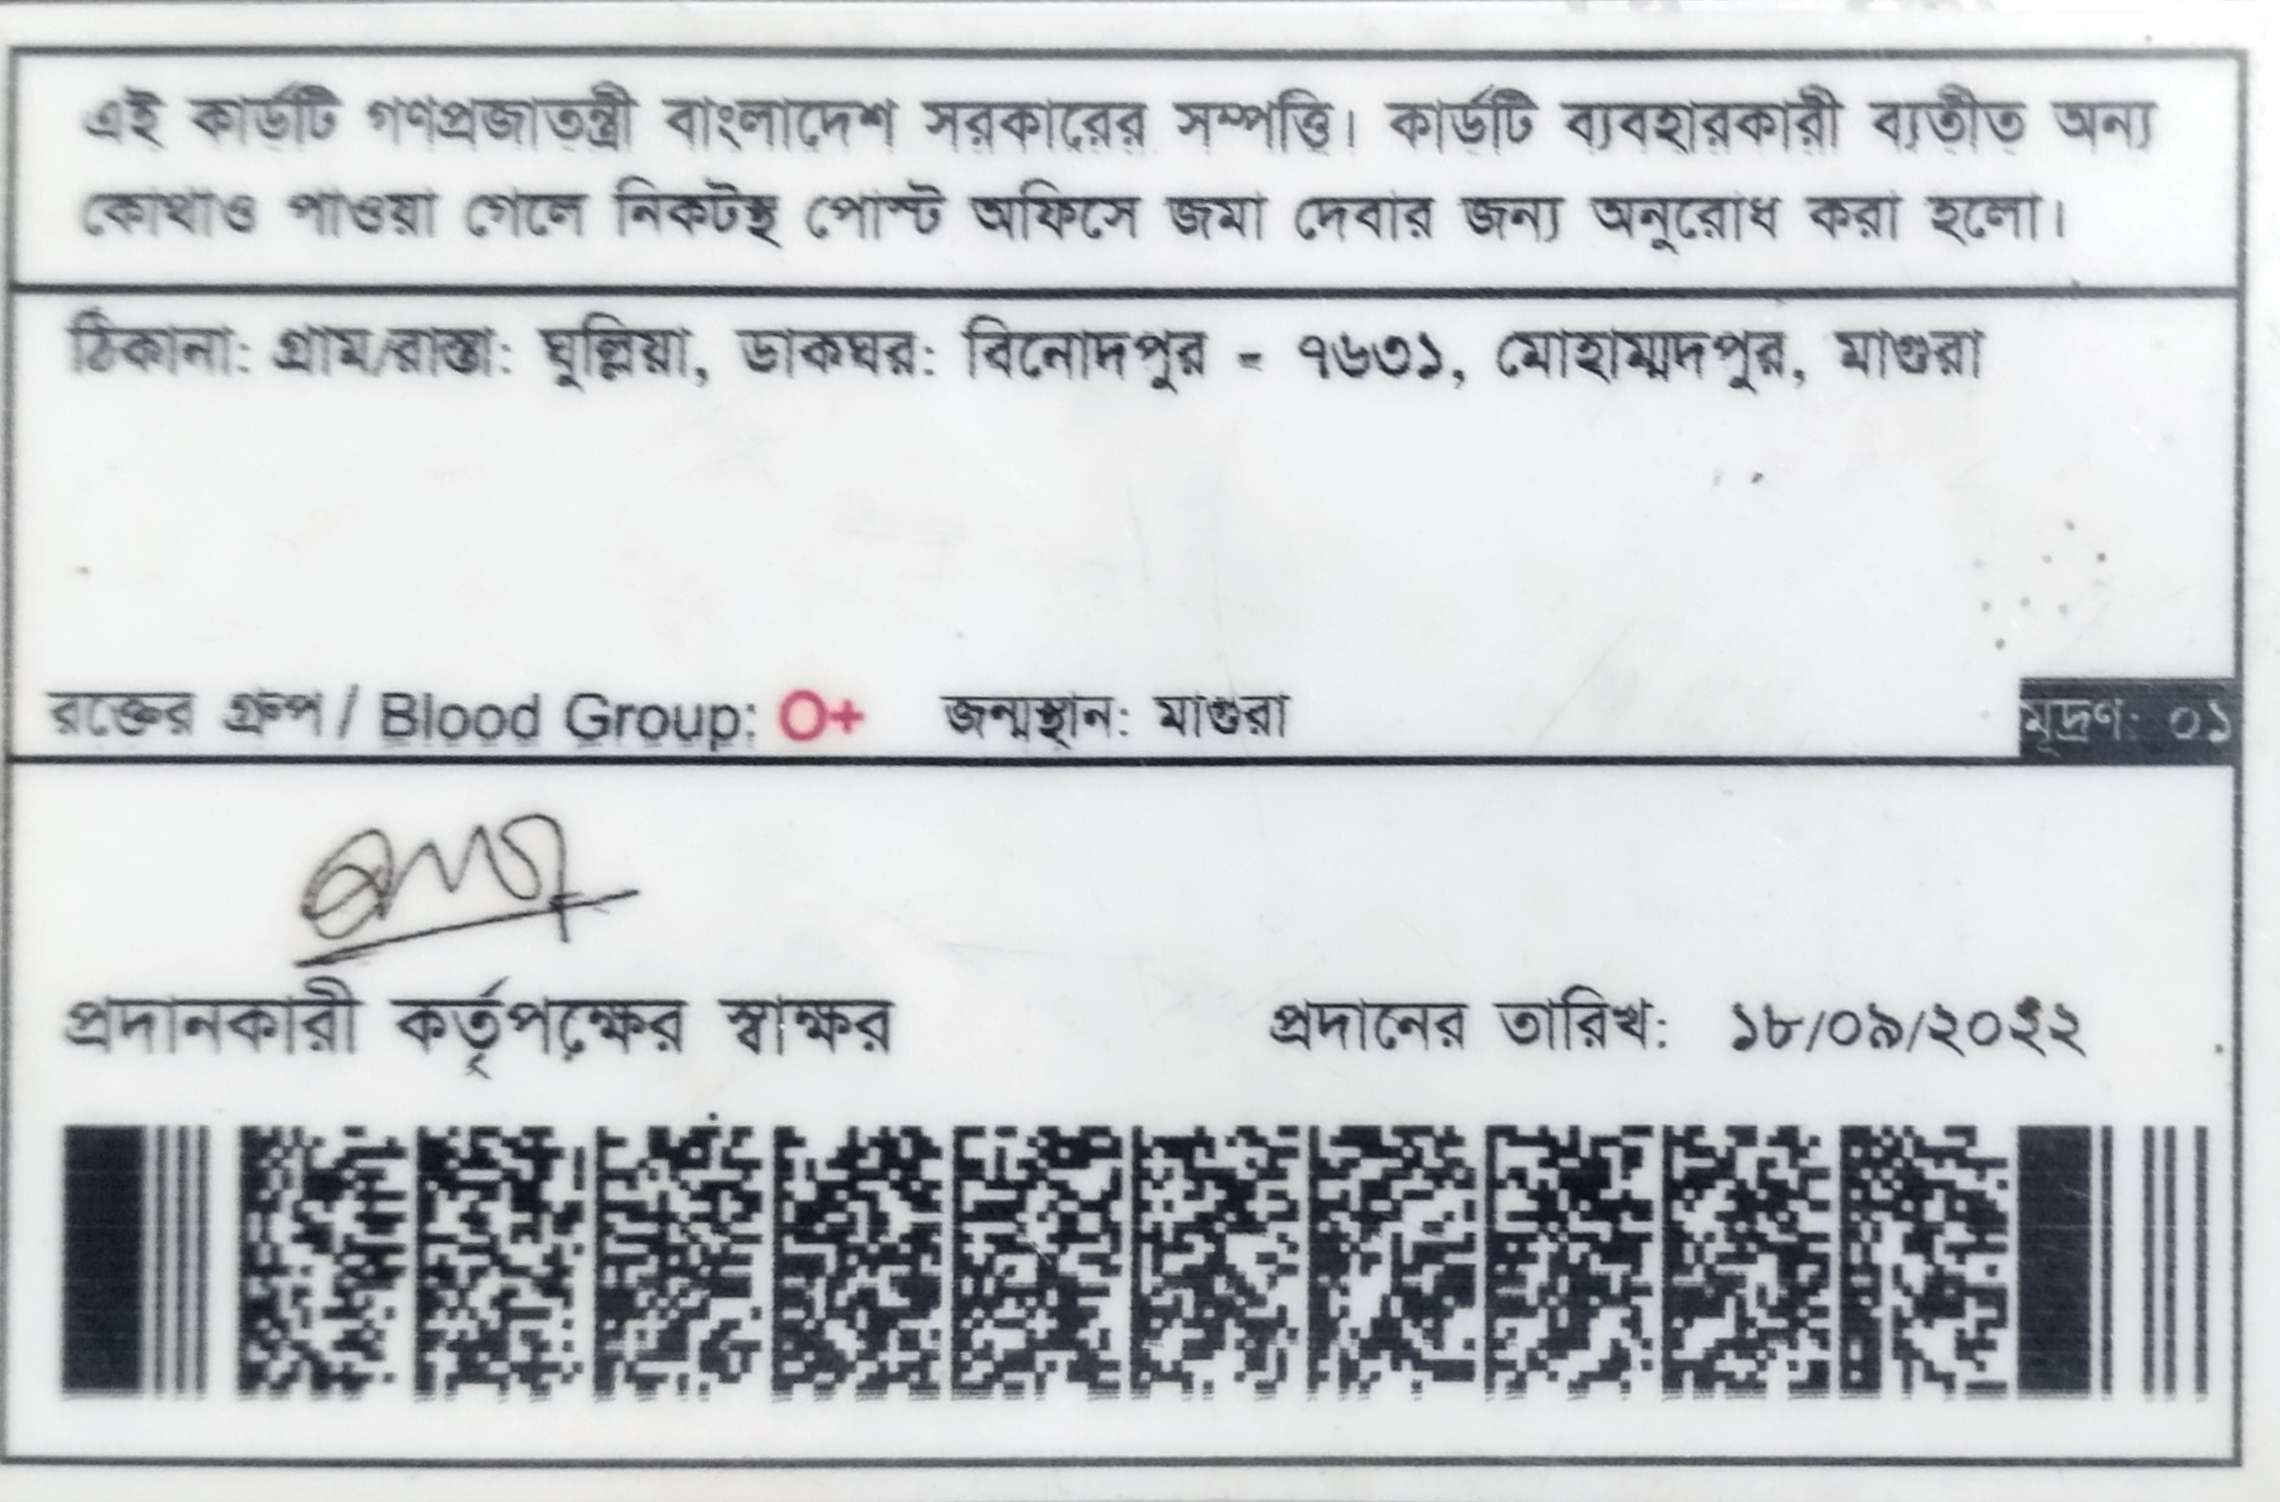 এই কার্ডটি গণপ্রজাতন্ত্রী বাংলাদেশ সরকারের সম্পত্তি। কার্ডটি ব্যবহারকারী ব্যতীত অন্য
কোথাও পাওয়া গেলে নিকটস্থ পোস্ট অফিসে জমা দেবার জন্য অনুরোধ করা হলো।
ঠিকানা: গ্রাম/রাস্তা: ঘুল্লিয়া, ডাকঘর: বিনোদপুর - ৭৬৩১, মোহাম্মদপুর, মাগুরা
রক্তের গ্রুপ / Blood Group: O+ জন্মস্থান: মাগুরা মূদ্রণ: ০১
প্রদানকারী কর্তৃপক্ষের স্বাক্ষর প্রদানের তারিখ: ১৮/০৯/২০২২